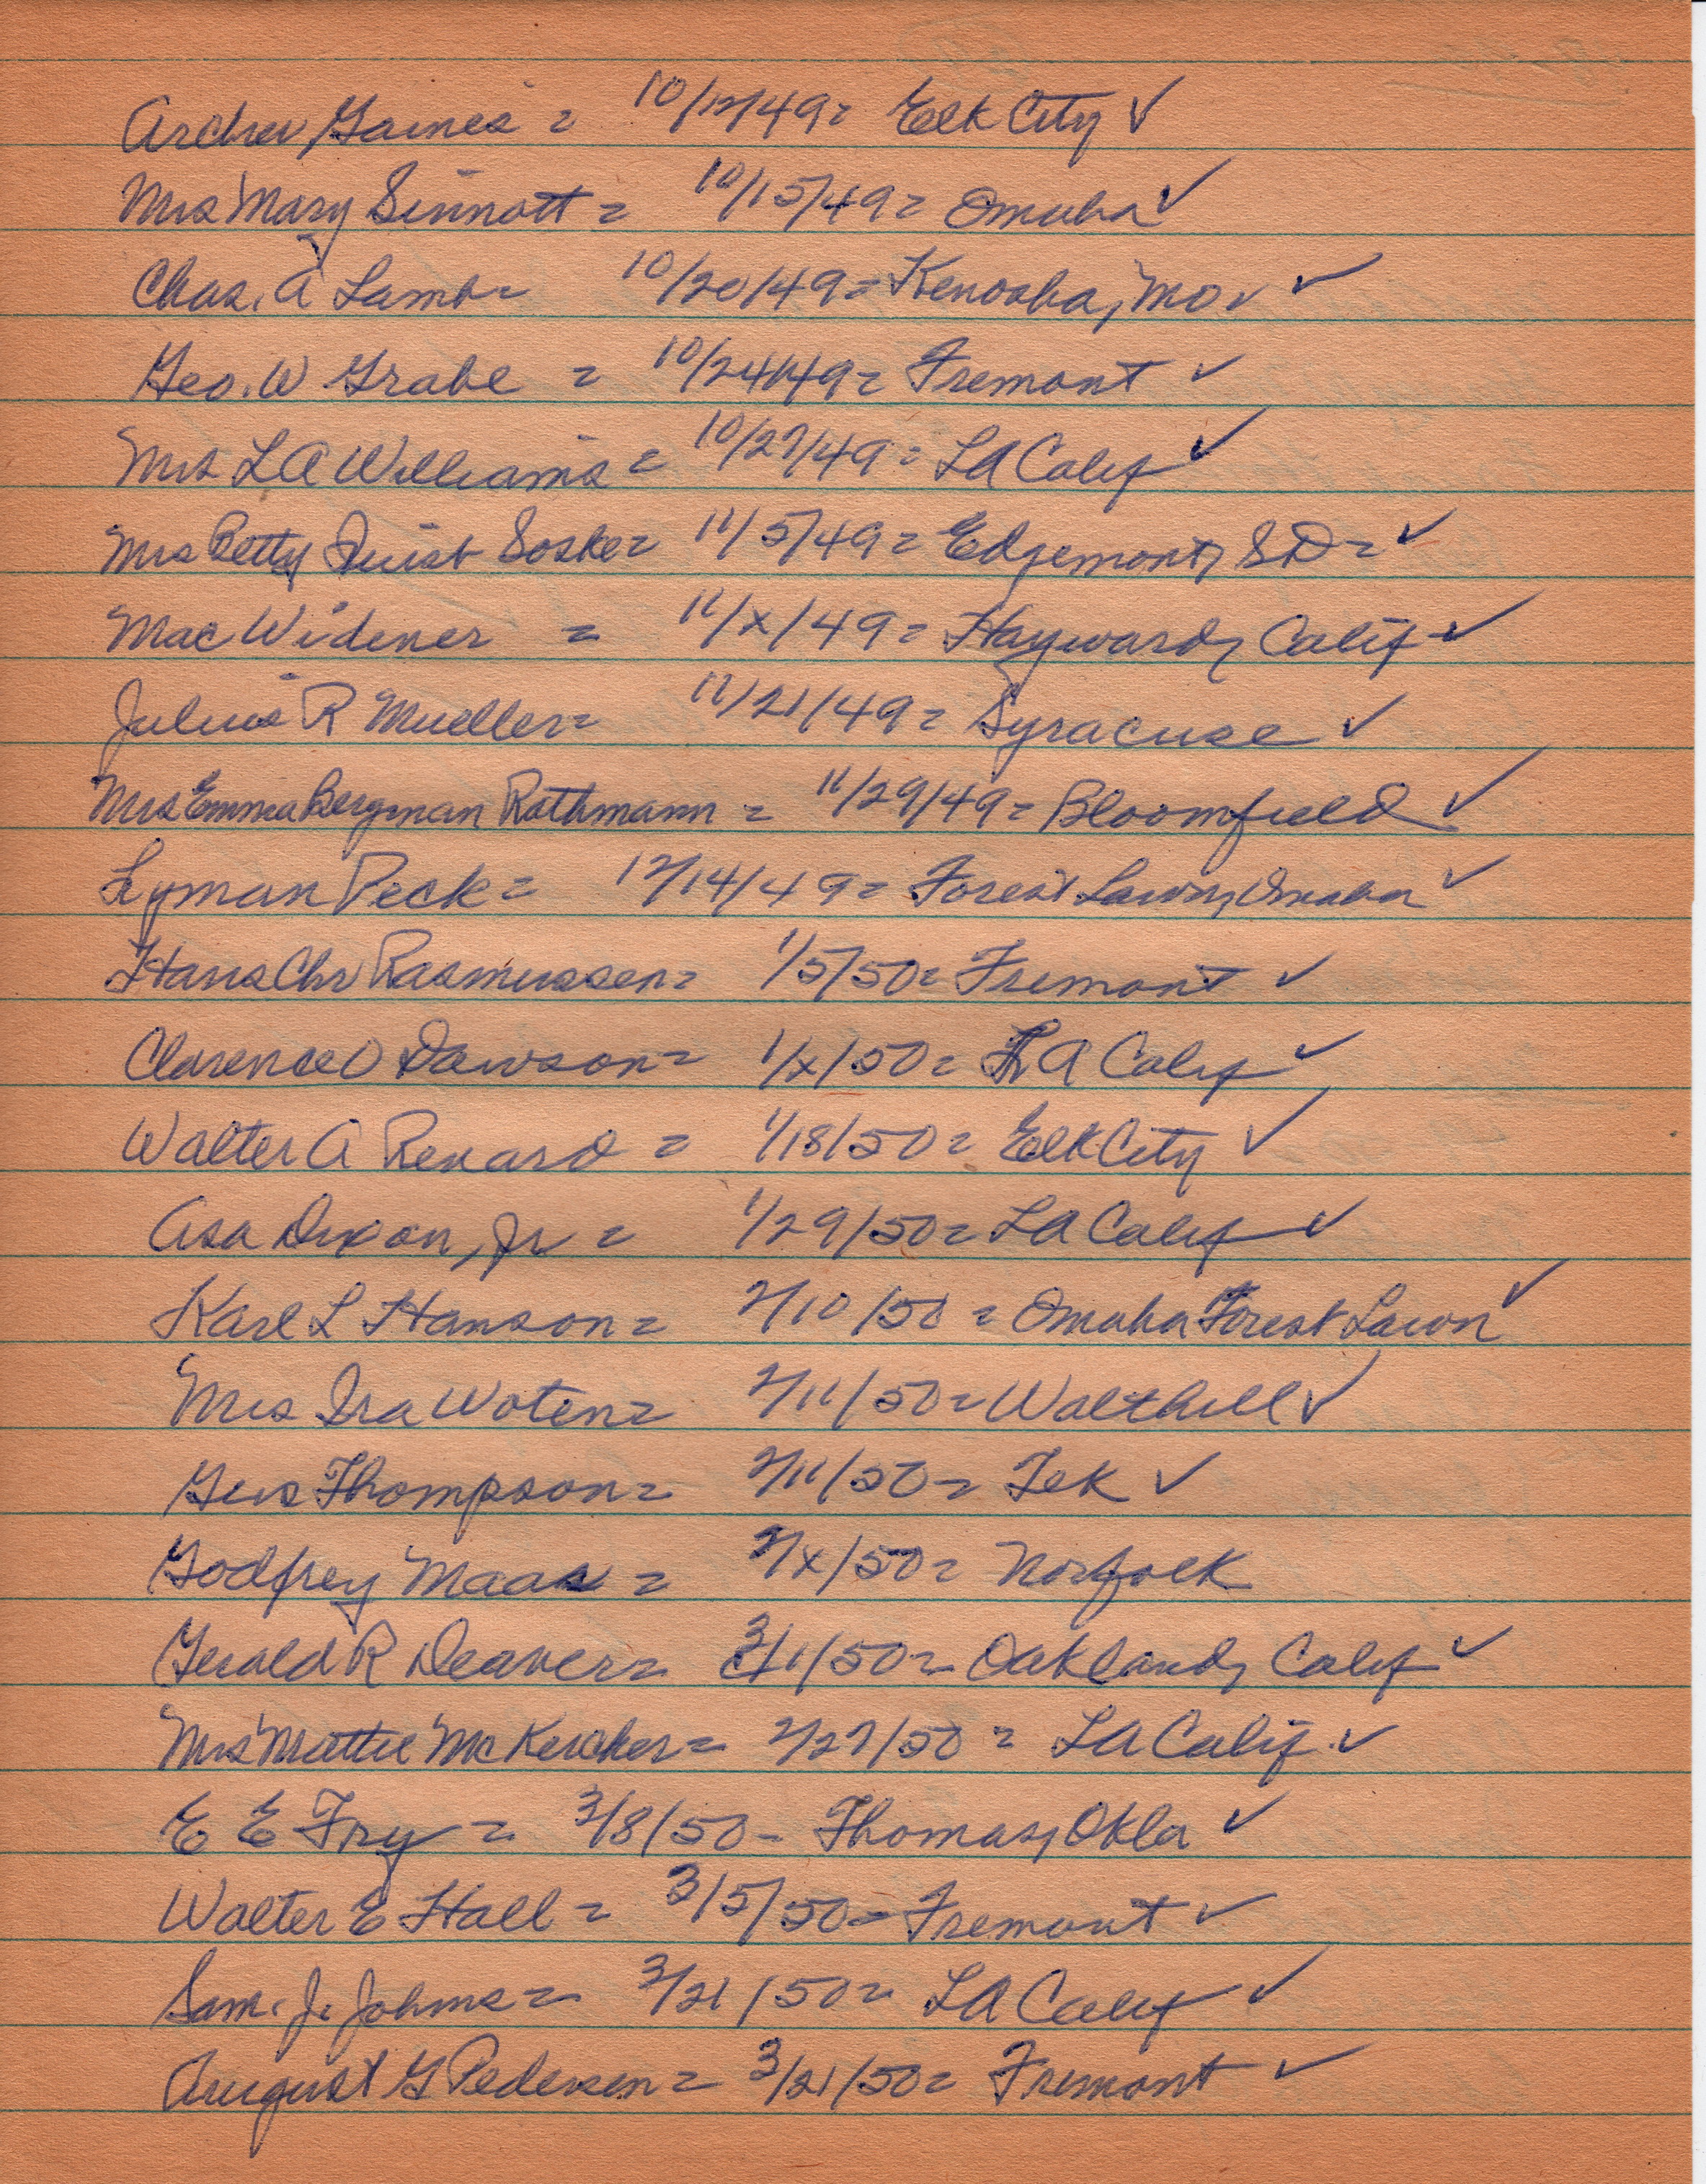 Archer Gaines = 10/12/49= Elk City ✓
Mrs Mary Sinnott = 10/15/49= Omaha ✓
Chas. A Lamb= 10/20/49= Kenosha, Mo. ✓
Geo. W Grabe = 10/24/49= Fremont ✓
Mrs L A Williams = 10/27/49= LA Calif ✓
Mrs Betty Quist Soske= 11/5/49= Edgemont, SD= ✓
Mac Widener = 11/x/49= Hayward, Calif ✓
Julius R Mueller= 11/21/49= Syracuse ✓
Mrs Emma Bergman Rathmann = 11/29/49= Bloomfield ✓
Lyman Peck= 12/14/49= Forest Lawn, Omaha ✓
Hans Chr Rasmussen= 1/5/50= Fremont ✓
Clarence O Dawson= 1/x/50= LA Calif ✓
Walter A Renard = 1/18/50= Elk City ✓
Asa Dixon, Jr = 1/29/50= LA Calif ✓
Karl L Hanson= 2/10/50 = Omaha Forest Lawn ✓
Mrs Ira Woten= 2/11/50= Walthill ✓
Gus Thompson= 2/11/50= Tek ✓
Godfrey Maas = 2/x/50= Norfolk
Gerald R Deaver= 3/1/50= Oakland, Calif ✓
Mrs Mattie McKercher= 2/27/50 = LA Calif. ✓
E E Fry = 3/8/50- Thomas, Okla ✓
Walter E Hall = 3/5/50= Fremont ✓
Sam. J. Johns= 3/21/50= LA Calif ✓
August G Pedersen= 3/21/50= Fremont ✓